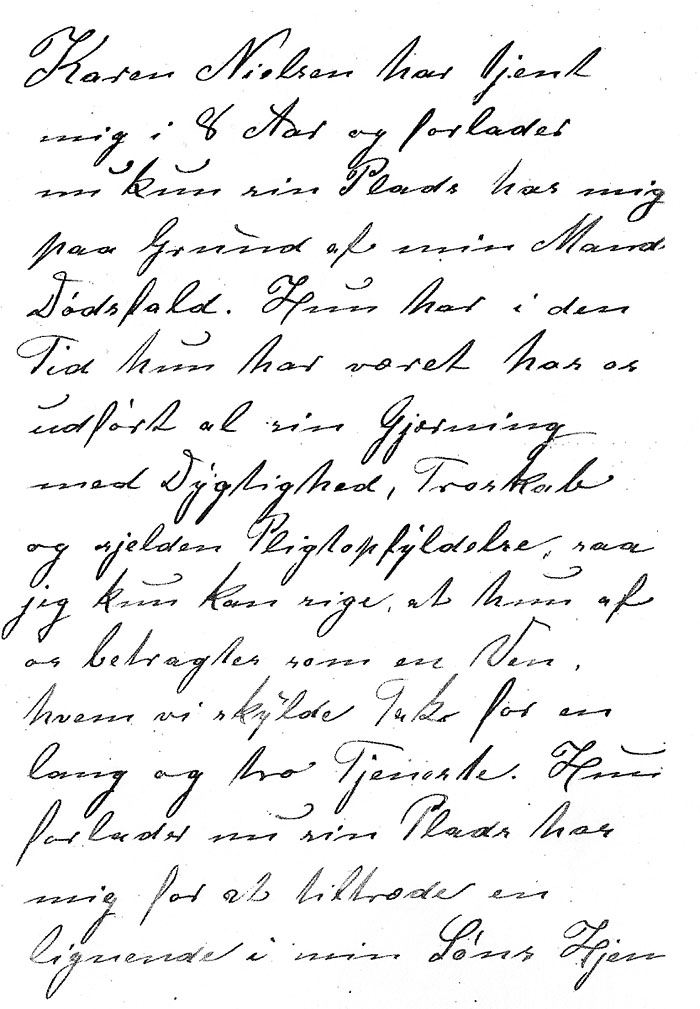 Karen Nielsen har tjent
mig i 8 Aar og forlader
nu kun sin Plads hos mig
paa Grund af min Mands
Dødsfald. Hun har i den
Tid hun har været hos os
udført al sin Gjerning
med Dygtighed, Troskab
og sjelden Pligtopfyldelse, saa
jeg kun kan sige, at hun af
os betragtes som en Ven,
hvem vi skylde Tak for en
lang og tro Tjeneste. Hun
forlader nu sin Plads hos
mig for at tiltræde en
lignende i min Søns Hjem